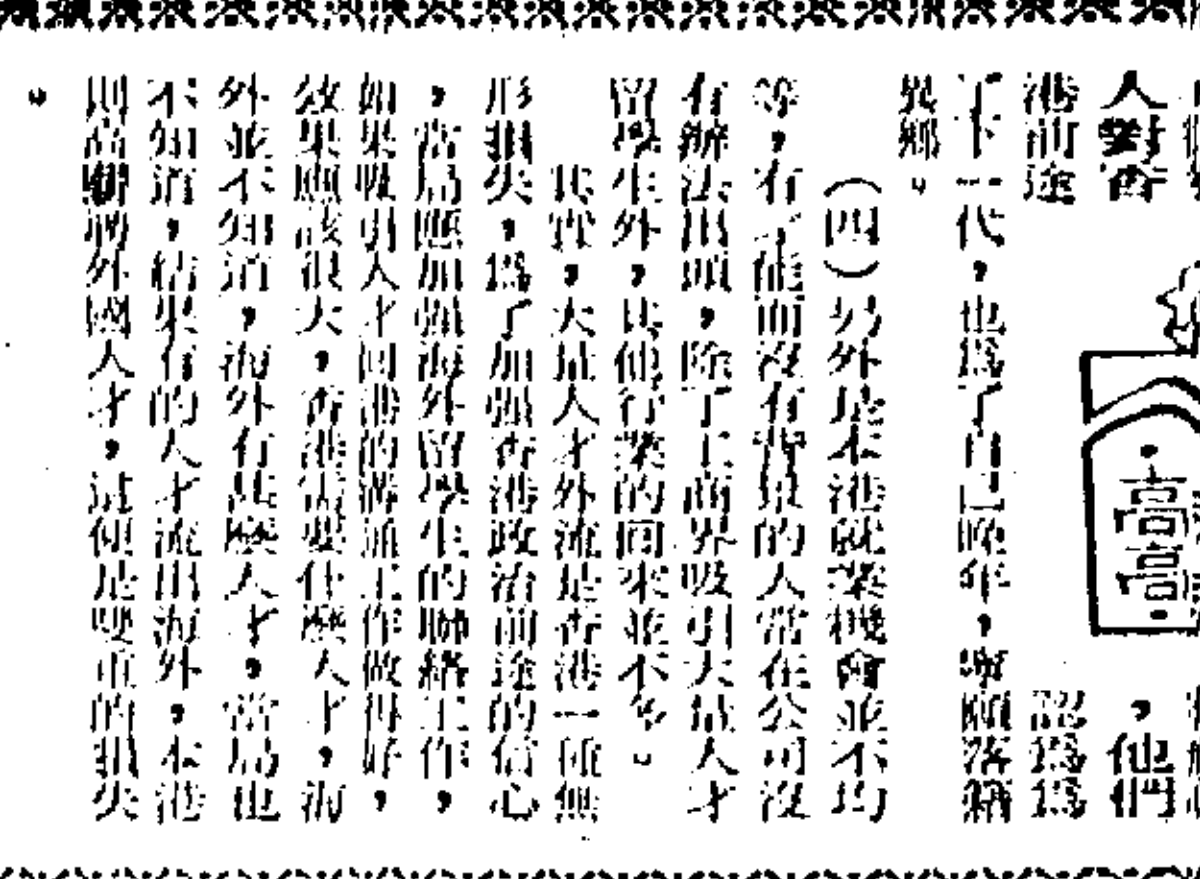 人對香
，他們
港前途
認為爲
了下一代，也爲了自己晚年，寧願落籍
異鄉。
（四）另外是本港就業機會並不均
等，有才能而沒有背景的人常在公司沒
有辦法出頭，除了工商界吸引大量人才
留學生外，其他行業的回來並不多。
其實，大量人才外流是香港一種無
形損失，爲了加强香港政治前途的信心
，當局應加强海外留學生的聯絡工作，
如果吸引人才回港的游說工作做得好，
效果應該很大，香港需要什麽人才，海
外並不知道，海外有甚麽人才，當局也
不知道，結果有的人才流出海外，本港
則高薪聘外國人才，這便是雙重的損失
。
高高